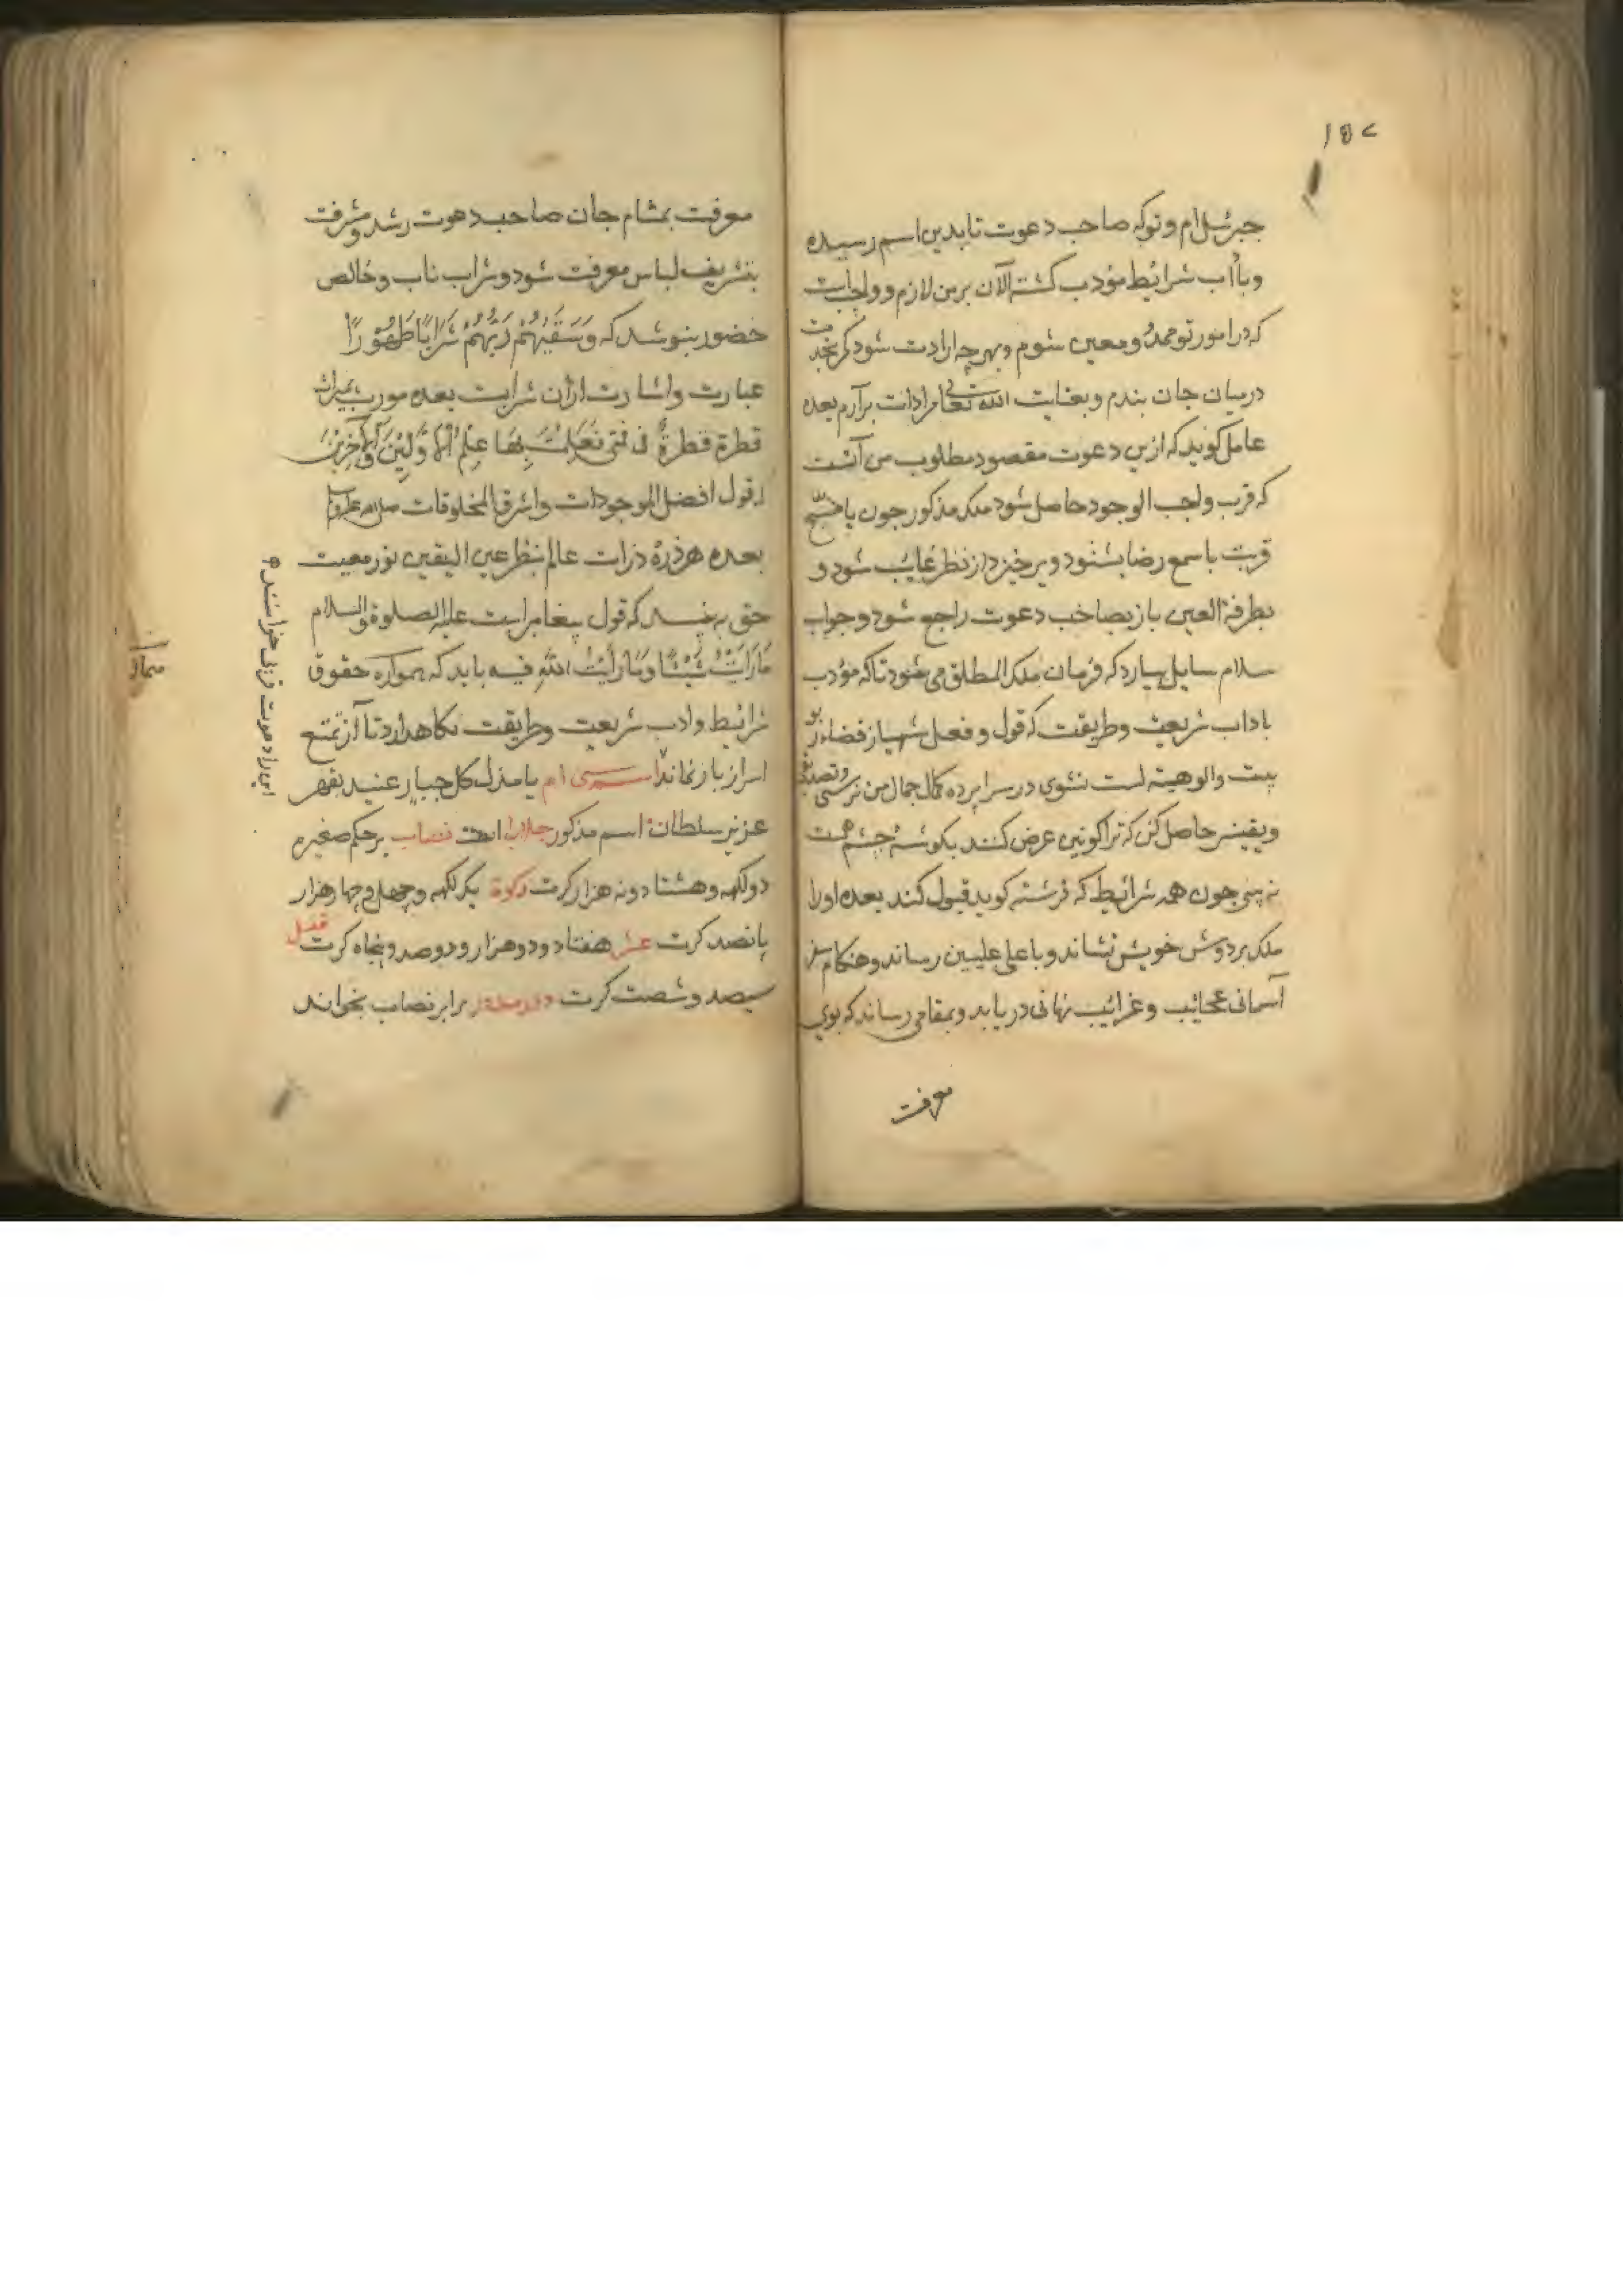 ۱۵۷
جبرئیل‌ام و توکه صاحب دعوت تابدین اسم رسیده
وبآداب شرائیط مؤدب کشته الآن برمن لازم وواجبست
که درامور توممد ومعین شوم وبهرچه ارادت شود کمر بخدمت
درمیان جان بندم وبعنایت الله تعالی مرادات برآرم بعده
عامل کوید که ازین دعوت مقصود مطلوب من آنست
که قرب واجب الوجود حاصل شود ملک مذکور جون
قربت باسمع رضا بشنود وبرخیزد از نظر غایب شود و
بطرفة العین باز بصاحب دعوت راجع شود وجواب
سلام سایل بیارد که فرمان ملک المطلق می شود تاکه مؤدب
باداب شریعت وطریقت که قول وفعل شهباز فضاء
بیت والوهیته است نشوی درسراپرده کمال جمال من نرسی وتصدیق
ویقین حاصل کن که ترا کونین عرض کنند بکوشهٔ چشم همت
نه بینی جون همه شرائیط که فرشته کوید قبول کند بعده اورا
ملک بردوش خویش نشاند وباعلی علیین رساند وهنکام سیر
آسمانی عجائیب وغرائیب نهانی دریابد وبمقامی رساند که بوی
معرفت
معرفت بمشام جان صاحب دعوت رشد ومشرفت
بتشریف لباس معرفت شود وشراب ناب وخالص
حضور بنوشد که وَسَقَیٰهُمْ رَبُّهُمْ شَرَابًا طَهُوْرًا
عبارت واشارت ازان شرابست بعده مورب بمیراث
قطرة قطرةٌ فی فمّی فَعَلِمْتُ بِهَا عِلْمُ الْاَوَّلِیْنَ وَالْآخِرِیْنَ
که قول افضل الموجودات واشرف المخلوقات صلی الله علیه وسلم
بعده هر ذرهٔ ذرات عالم بنظر عین الیقین نور معیت
حق به بیند که قول پیغامبر است علیه الصلوة والسلام
مَارَاَیْتُ شَیْئًا وَمَارَاَیْتُ اللهِ فیه باید که همواره حقوق
شرائیط وادب شریعت وطریقت نکاهدارد تا از تمتع
اسرار باز نماند اسم سی ام یا مذل کل جبار عنید بقهر
عزیز سلطانهٔ اسم مذکور جلالی است نصاب برحکم صغیره
دولکهه وهشتاد ونه هزار کرت زکوة یکلکهه وچهل وچهار هزار
پانصد کرت عشر هفتاد ودوهزار ودوصد وپنجاه کرت قفل
سیصد وشصت کرت دور مدور برابر نصاب بخواند
این را دعوت قربی خوانند ۴